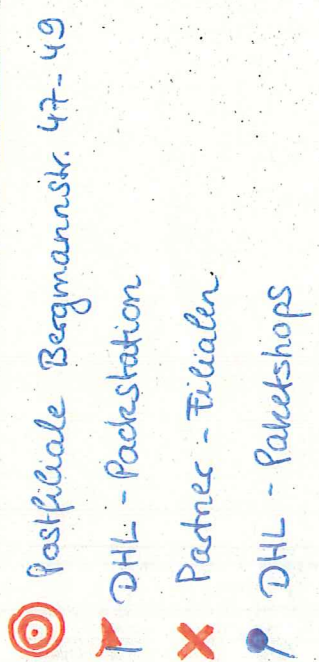 Postfiliale Bergmannstr. 47-49
DHL - Packstation
Partner - Filialen
DHL - Paketshops